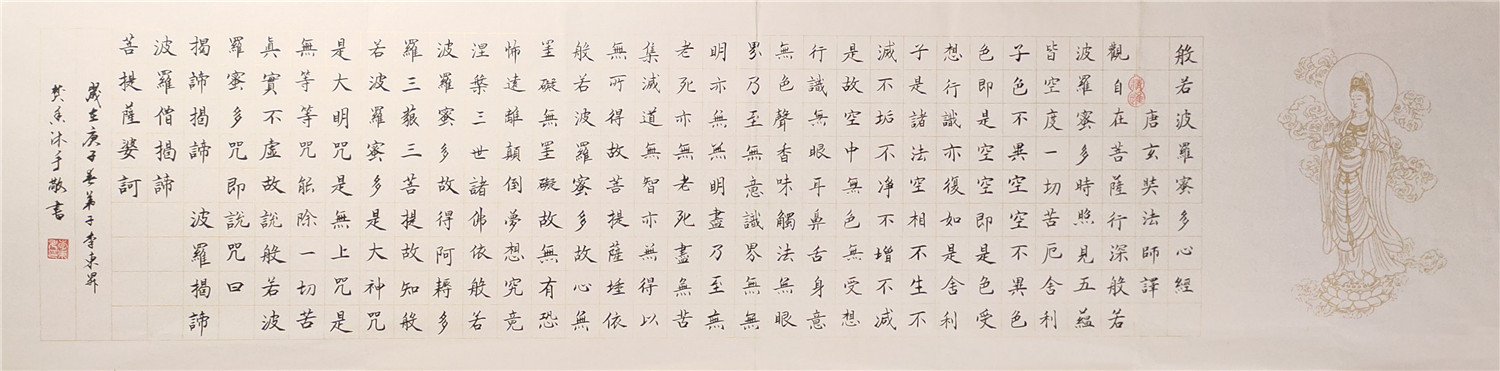 般若波羅蜜多心經
唐玄奘法師譯
觀自在菩薩行深般若
波羅蜜多時照見五蘊
皆空度一切苦厄舍利
子色不異空空不異色
色即是空空即是色受
想行識亦復如是舍利
子是諸法空相不生不
滅不垢不淨不增不減
是故空中無色無受想
行識無眼耳鼻舌身意
無色聲香味觸法無眼
界乃至無意識界無無
明亦無無明盡乃至無
老死亦無老死盡無苦
集滅道無智亦無得以
無所得故菩提薩埵依
般若波羅蜜多故心無
罣礙無罣礙故無有恐
怖遠離顛倒夢想究竟
涅槃三世諸佛依般若
波羅蜜多故得阿耨多
羅三藐三菩提故知般
若波羅蜜多是大神咒
是大明咒是無上咒是
無等等咒能除一切苦
真實不虛故說般若波
羅蜜多咒即說咒曰
揭諦揭諦 波羅揭諦
波羅僧揭諦
菩提薩婆訶
歲在庚子善弟子李東昇
焚香沐手敬書